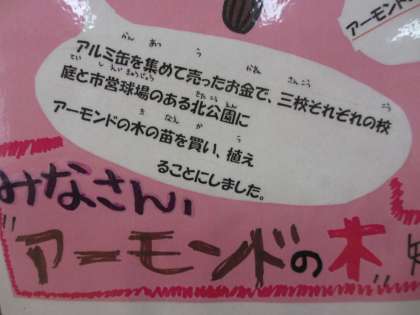 アーモンド
アルミ缶を集めて売ったお金で、三校それぞれの校
庭と市営球場のある北公園に
アーモンドの木の苗を買い、植え
ることにしました。
みなさん、
"アーモンドの木"